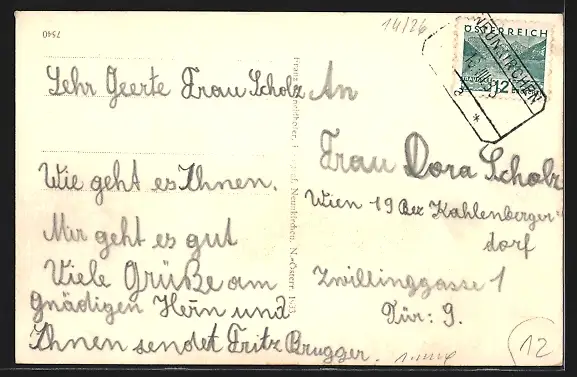 7540
14/26
Sehr Geerte Frau Scholz
Wie geht es Ihnen.
Mir geht es gut
Viele Grüße am
gnädigen Herrn und
Ihnen sendet Fritz Brugger.
Neunkirchen, N.-Österr. 1933.
ÖSTERREICH
12
NEUNKIRCHEN
An
Frau Dora Scholz
Wien 19 Bez Kahlenberger-
dorf
Zwillinggasse 1
Tür: 9.
12